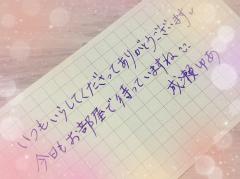 いつもいらしてくださってありがとうございます♥
今日もお部屋で待っていますね^^
成瀬ゆあ